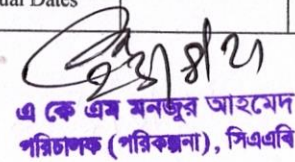 ual Dates
এ কে এম মনজুর আহমেদ
পরিচালক (পরিকল্পনা), সিএএবি